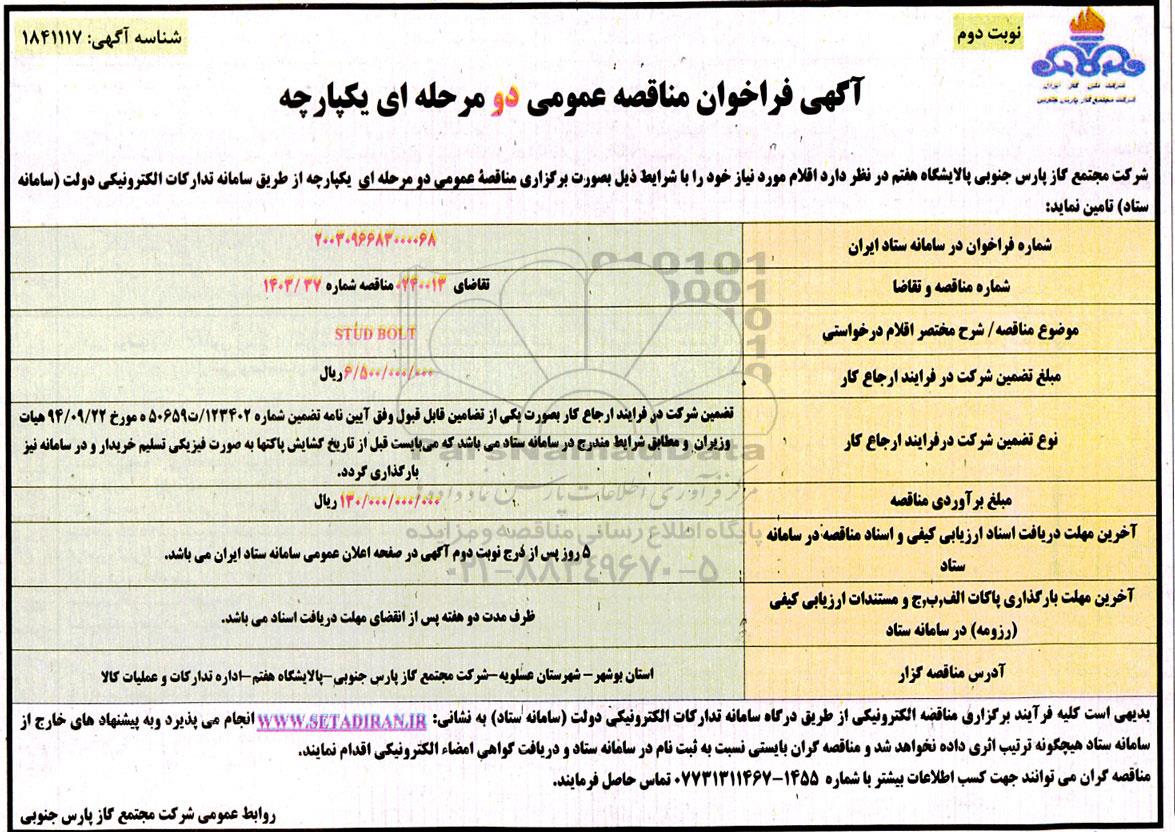 نوبت دوم
شناسه آگهی: ۱۸۴۱۱۱۷
شرکت ملی گاز ایران
شرکت مجتمع گاز پارس جنوبی
آگهی فراخوان مناقصه عمومی دو مرحله ای یکپارچه
شرکت مجتمع گاز پارس جنوبی پالایشگاه هفتم در نظر دارد اقلام مورد نیاز خود را با شرایط ذیل بصورت برگزاری مناقصهٔ عمومی دو مرحله ای یکپارچه از طریق سامانه تدارکات الکترونیکی دولت (سامانه
ستاد) تامین نماید:
شماره فراخوان در سامانه ستاد ایران
۲۰۰۳۰۹۶۶۸۳۰۰۰۰۶۸
شماره مناقصه و تقاضا
تقاضای ۰۲۴۰۰۱۳ مناقصه شماره ۳۷ /۱۴۰۳
موضوع مناقصه/ شرح مختصر اقلام درخواستی
STUD BOLT
مبلغ تضمین شرکت در فرایند ارجاع کار
۶/۵۰۰/۰۰۰/۰۰۰ریال
نوع تضمین شرکت درفرایند ارجاع کار
تضمین شرکت در فرایند ارجاع کار بصورت یکی از تضامین قابل قبول وفق آیین نامه تضمین شماره ۱۲۳۴۰۲/ت۵۰۶۵۹ ه مورخ ۹۴/۰۹/۲۲ هیات
وزیران و مطابق شرایط مندرج در سامانه ستاد می باشد که می‌بایست قبل از تاریخ گشایش پاکتها به صورت فیزیکی تسلیم خریدار و در سامانه نیز
بارگذاری گردد.
مبلغ برآوردی مناقصه
۱۳۰/۰۰۰/۰۰۰/۰۰۰ ریال
آخرین مهلت دریافت اسناد ارزیابی کیفی و اسناد مناقصه در سامانه
ستاد
۵ روز پس از درج نوبت دوم آگهی در صفحه اعلان عمومی سامانه ستاد ایران می باشد.
آخرین مهلت بارگذاری پاکات الف,ب,ج و مستندات ارزیابی کیفی
(رزومه) در سامانه ستاد
ظرف مدت دو هفته پس از انقضای مهلت دریافت اسناد می باشد.
آدرس مناقصه گزار
استان بوشهر- شهرستان عسلویه-شرکت مجتمع گاز پارس جنوبی-پالایشگاه هفتم-اداره تدارکات و عملیات کالا
بدیهی است کلیه فرآیند برگزاری مناقصه الکترونیکی از طریق درگاه سامانه تدارکات الکترونیکی دولت (سامانه ستاد) به نشانی: WWW.SETADIRAN.IR انجام می پذیرد وبه پیشنهاد های خارج از
سامانه ستاد هیچگونه ترتیب اثری داده نخواهد شد و مناقصه گران بایستی نسبت به ثبت نام در سامانه ستاد و دریافت گواهی امضاء الکترونیکی اقدام نمایند.
مناقصه گران می توانند جهت کسب اطلاعات بیشتر با شماره ۱۴۵۵-۰۷۷۳۱۳۱۱۴۶۷ تماس حاصل فرمایند.
روابط عمومی شرکت مجتمع گاز پارس جنوبی
ParsNamadData
مرکز فرآوری اطلاعات پارس نماد داده ها
پایگاه اطلاع رسانی مناقصه و مزایده
۰۲۱-۸۸۳۴۹۶۷۰-۵